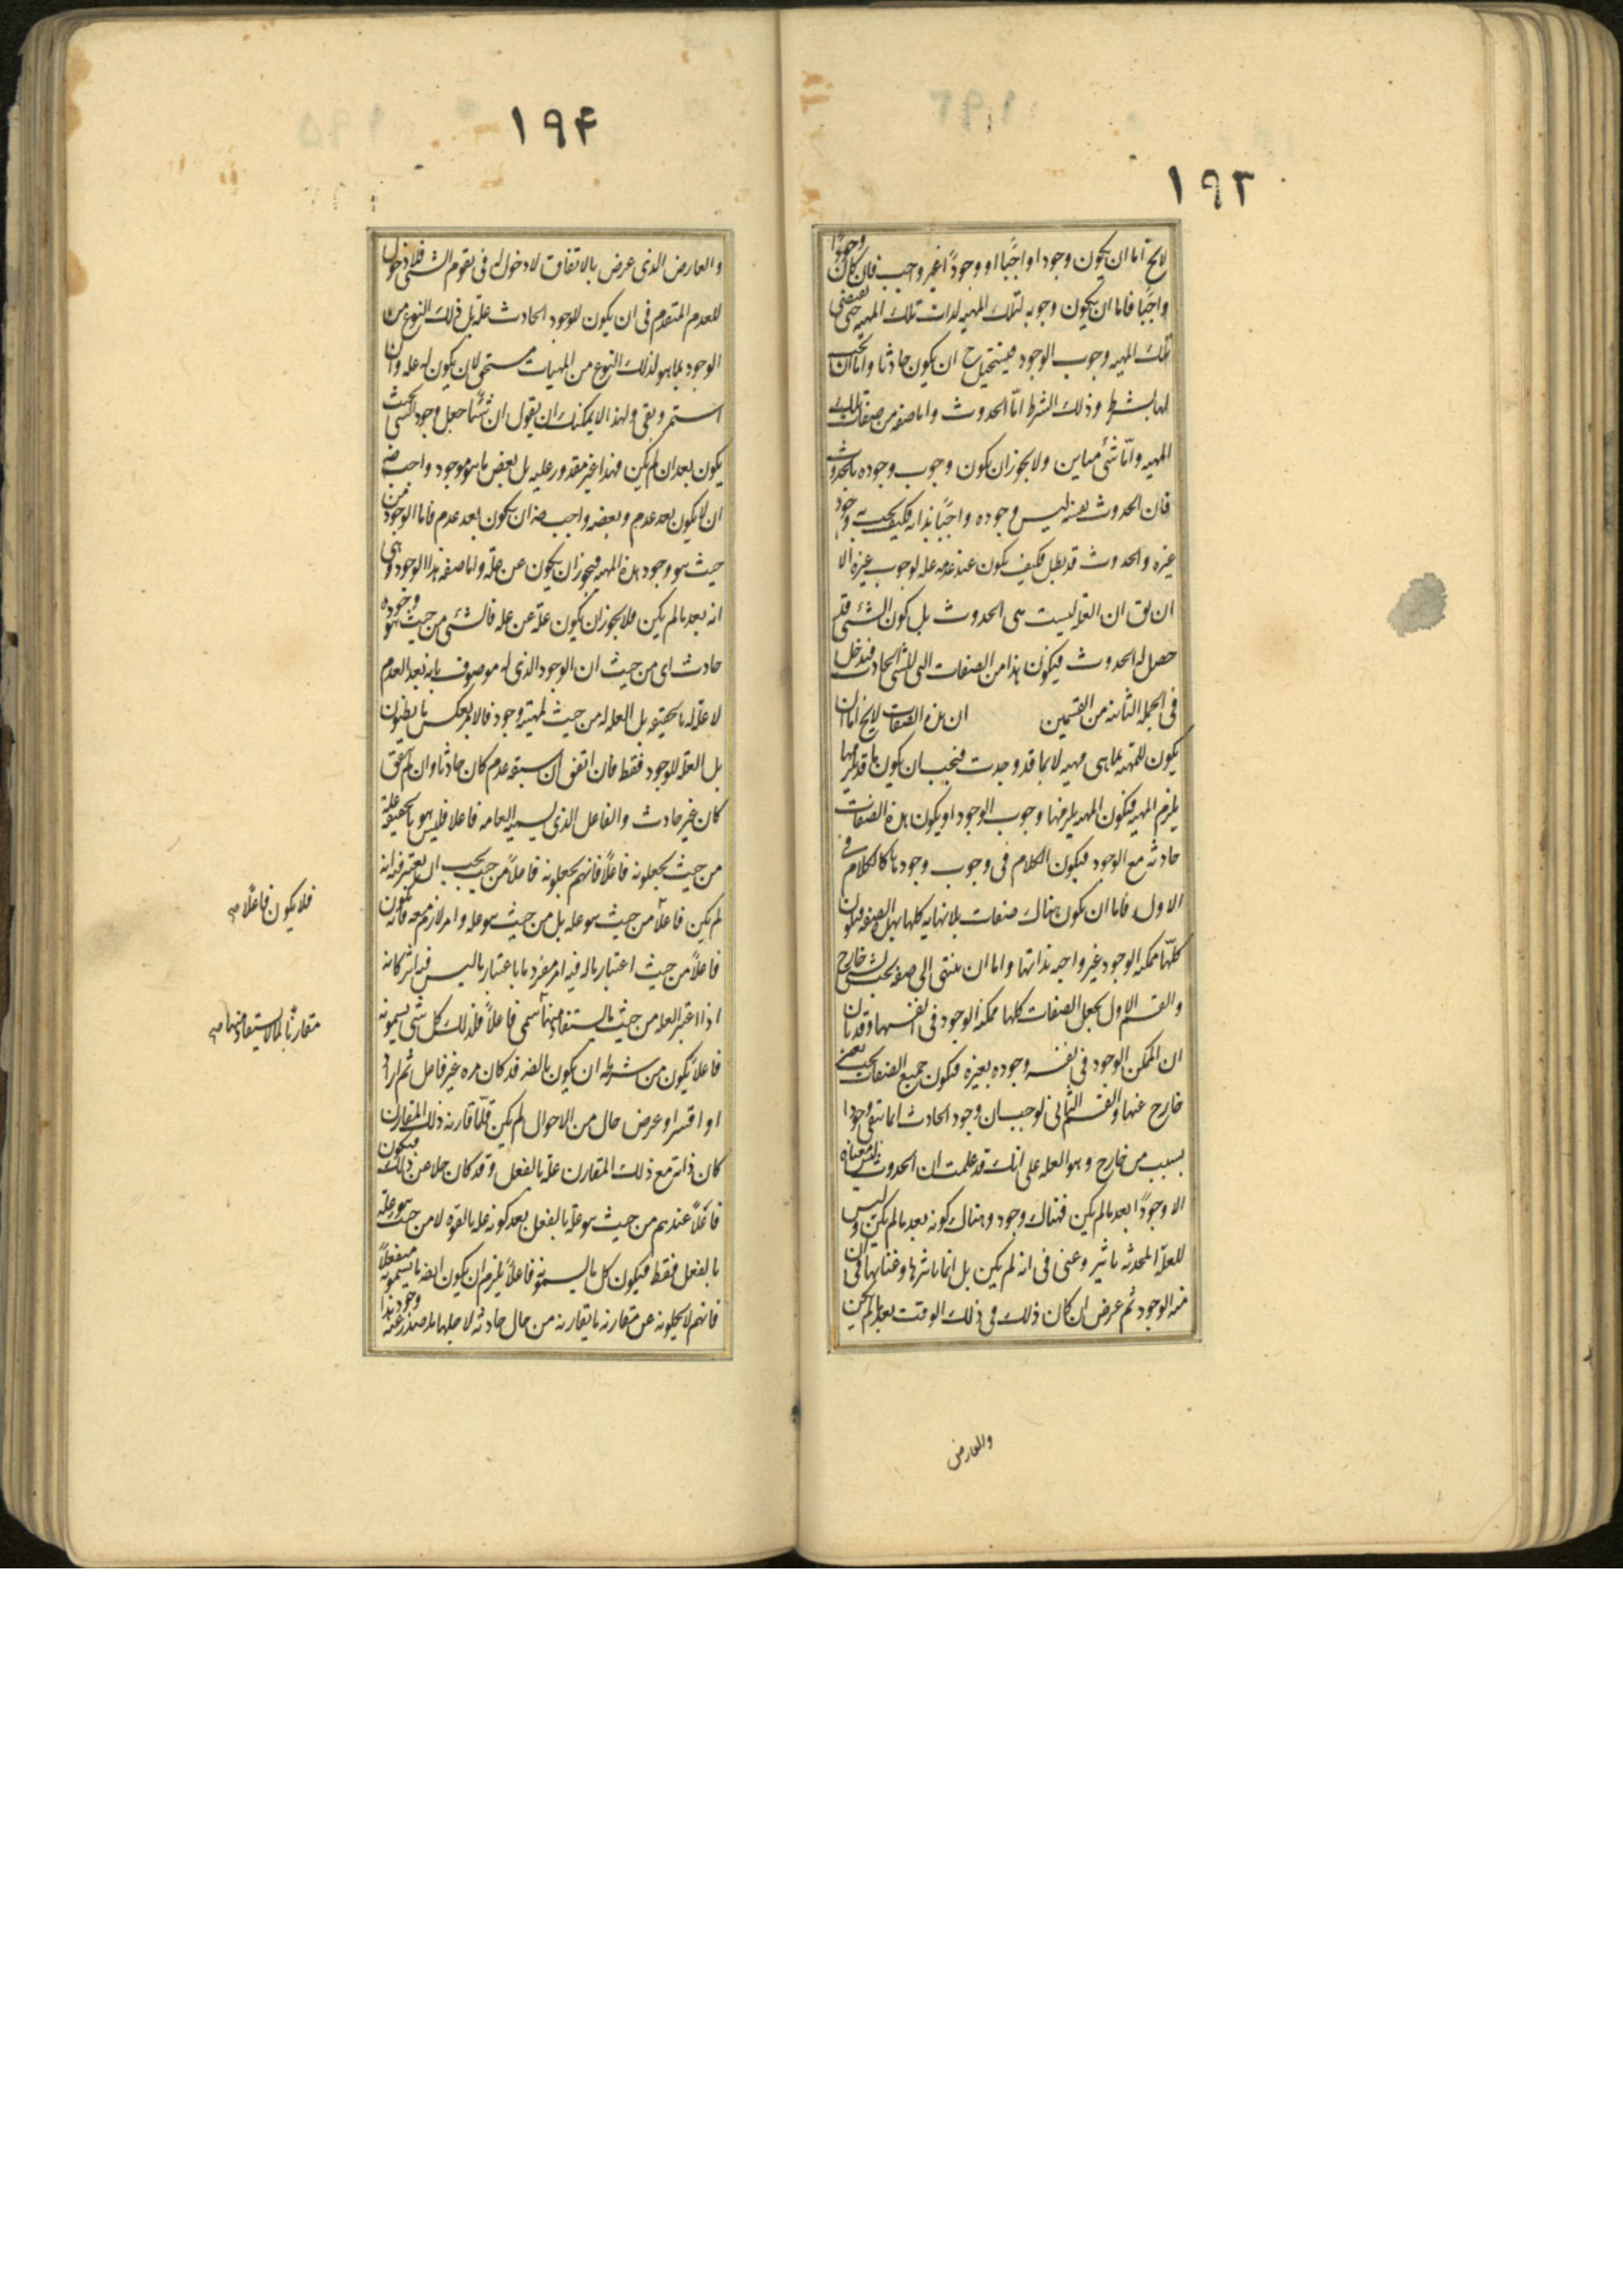 ١٩٣
لايخ اما ان يكون وجودا واجبا او وجودا غير واجب فان كان وجودا
واجبا فاما ان يكون وجوبه لتلك المهيه لذات تلك المهيه حتى تقتضى
تلك المهيه وجوب الوجود فيستحيل ح ان يكون حادثا واما ان تجب
لها بشرط وذلك الشرط اما الحدوث واما صفه من صفات تلك
المهيه واما شئ مباين ولا يجوز ان يكون وجوب وجوده بالحدوث
فان الحدوث نفسه ليس وجوده واجبا بذاته فكيف يجب به وجود
غيره والحدوث قد بطل فكيف يكون عند عدمه عله لوجوب غيره الا
ان يق ان العله ليست هى الحدوث بل كون الشئ قد
حصل له الحدوث فيكون هذا من الصفات التى للشئ الحادث فيدخل
فى الجمله الثانيه من القسمين ان هذه الصفات لايخ اما ان
يكون للمهيه بما هى مهيه لا بما قد وجدت فيجب ان يكون ما قد يلزمها
يلزم المهيه فيكون المهيه يلزمها وجوب الوجود او يكون هذه الصفات
حادثه مع الوجود فيكون الكلام فى وجوب وجودها كالكلام فى
الاول فاما ان يكون هناك صفات بلا نهايه كلها بهذه الصفه فيكون
كلها ممكنه الوجود غير واجبه بذاتها واما ان ينتهى الى صفه تجب لشئ خارج
والقسم الاول يجعل الصفات كلها ممكنه الوجود فى انفسها وقد بان
ان الممكن الوجود فى نفسه وجوده بغيره فيكون جميع الصفات تجب بمعنى
خارج عنها والقسم الثانى يوجب ان وجود الحادث انما يبقى وجودا
بسبب من خارج وهو العله على انك قد علمت ان الحدوث ليس معناه
الا وجودا بعد ما لم يكن فهناك وجود وهناك كونه بعد ما لم يكن وليس
للعله المحدثه تاثير وغنى فى انه لم يكن بل انما تاثيرها وغناؤها فى ان
منه الوجود ثم عرض ان كان ذلك فى ذلك الوقت بعد ما لم يكن
والعارض
١٩۴
والعارض الذى عرض بالاتفاق لا دخول له فى تقوم الشئ فلا دخول
للعدم المتقدم فى ان يكون للوجود الحادث عله بل ذلك النوع من
الوجود بما هو لذلك النوع من المهيات مستحق لان يكون له عله وان
استمر وبقى ولهذا لا يمكنك ان يقول ان شئا جعل وجود الشئ بحيث
يكون بعد ان لم يكن فهذا غير مقدور عليه بل بعض ما هو موجود واجب ضه
ان لا يكون بعد عدم وبعضه واجب ضه ان يكون بعد عدم فاما الوجود من
حيث هو وجود هذه المهيه فيجوز ان يكون عن عله واما صفه هذا الوجود وهى
انه بعد ما لم يكن فلا يجوز ان يكون عله عن عله فالشئ من حيث هو وجوده
حادث اى من حيث ان الوجود الذى له موصوف بانه بعد العدم
لا عله له بالحقيقه بل العله له من حيث للمهيه وجود فالامر بعكس ما يظنون
بل العله للوجود فقط فان اتفق ان سبقه عدم كان حادثا وان لم يتفق
كان غير حادث والفاعل الذى يسميه العامه فاعلا فليس هو بالحقيقه عله
من حيث يجعلونه فاعلا فانهم يجعلونه فاعلا من حيث يجب ان يعتبر فيه انه
لم يكن فاعلا من حيث هو عله بل من حيث هو عله وامر لازم معه فانه يكون
فاعلا من حيث اعتبار ما له فيه اثر مقرونا باعتبار ما ليس فيه اثر كانه
اذا اعتبر العله من حيث ما يستفاد منها سمى فاعلا فلذلك كل شئ يسمونه
فاعلا يكون من شرطه ان يكون بالضه قد كان مره غير فاعل ثم اراد
او اقسر او عرض حال من الاحوال لم يكن فلما قارنه ذلك المقارن
كان ذاته مع ذلك المقارن عله بالفعل وقد كان خلا عن ذلك فيكون
فاعلا عندهم من حيث هو عله بالفعل بعد كونه عله بالقوه لا من حيث هو عله
بالفعل فقط فيكون كل ما يسمونه فاعلا يلزم ان يكون ايضه ما يسمونه منفعلا
فانهم لا يخلونه عن مقارنه ما يقارنه من حال حادثه لاجلها ما صدر عنه وجود هذا
فلا يكون فاعلا صح
مقارنا لما لا يستفاد منها صح